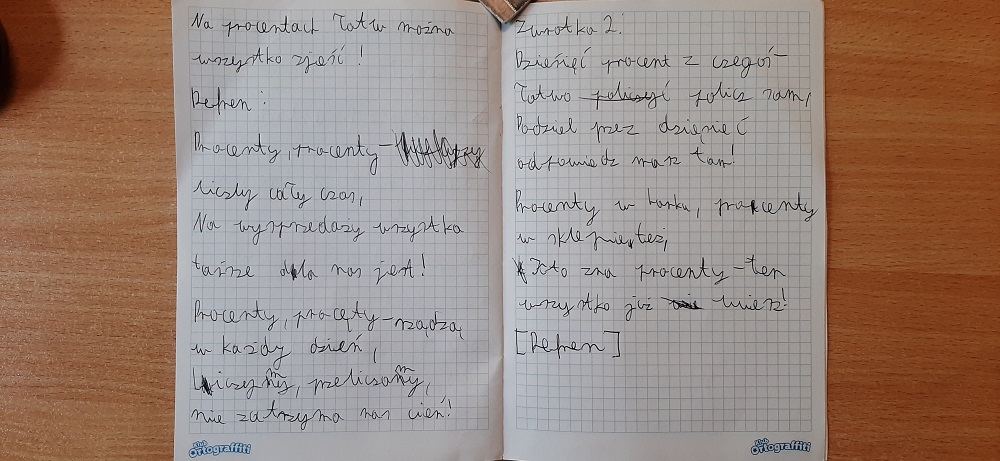 Na procentach łatwo można
wszystko zjeść!
Refren:
Procenty, procenty –
liczby cały czas,
Na wyprzedaży wszystko
tańsze dla nas jest!
Procenty, procęty – rządzą
w każdy dzień,
Liczymy, przeliczamy,
nie zatrzyma nas cień!
Klub Ortograffiti
Zwrotka 2:
Dzieśięć procent z czegoś –
Łatwo policz sam,
Podziel przez dziesięć
odpowiedz masz tam!
Procenty w banku, procenty
w sklepie też,
Kto zna procenty – ten
wszystko już wiesz!
[Refren]
Klub Ortograffiti